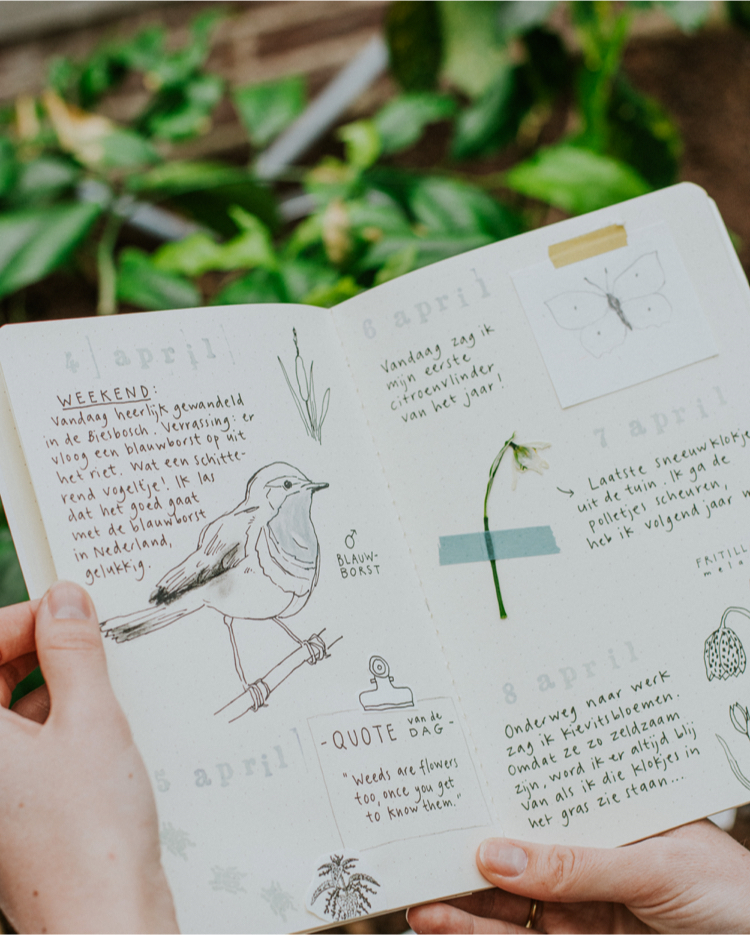 4 april
WEEKEND:
Vandaag heerlijk gewandeld
in de Biesbosch. Verrassing: er
vloog een blauwborst op uit
het riet. Wat een schitte-
rend vogeltje! Ik las
dat het goed gaat
met de blauwborst
in Nederland,
gelukkig.
♂
BLAUW-
BORST
5 april
-QUOTE van de DAG-
"Weeds are flowers
too, once you get
to know them."
6 april
Vandaag zag ik
mijn eerste
citroenvlinder
van het jaar!
7 april
Laatste sneeuwklokje
uit de tuin. Ik ga de
polletjes scheuren,
heb ik volgend jaar
FRITILL
mele
8 april
Onderweg naar werk
zag ik kievitsbloemen.
Omdat ze zo zeldzaam
zijn, word ik er altijd blij
van als ik die klokjes in
het gras zie staan...